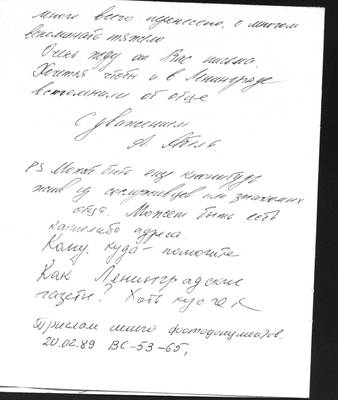 много всего перенесено, о многом
вспоминать тяжело
Очень жду от Вас письма.
Хочется чтобы и в Ленинграде
вспоминали об отце
С уважением
А.
PS Может быть еще кто-нибудь
жив из сослуживцев или знакомых
отца. Может быть есть
какие-либо адреса.
Кому, куда - помогите
Как Ленинградские
газеты? Хоть кусочек
Пришлем много фотодокументов.
20.02.89 ВС-53-65,